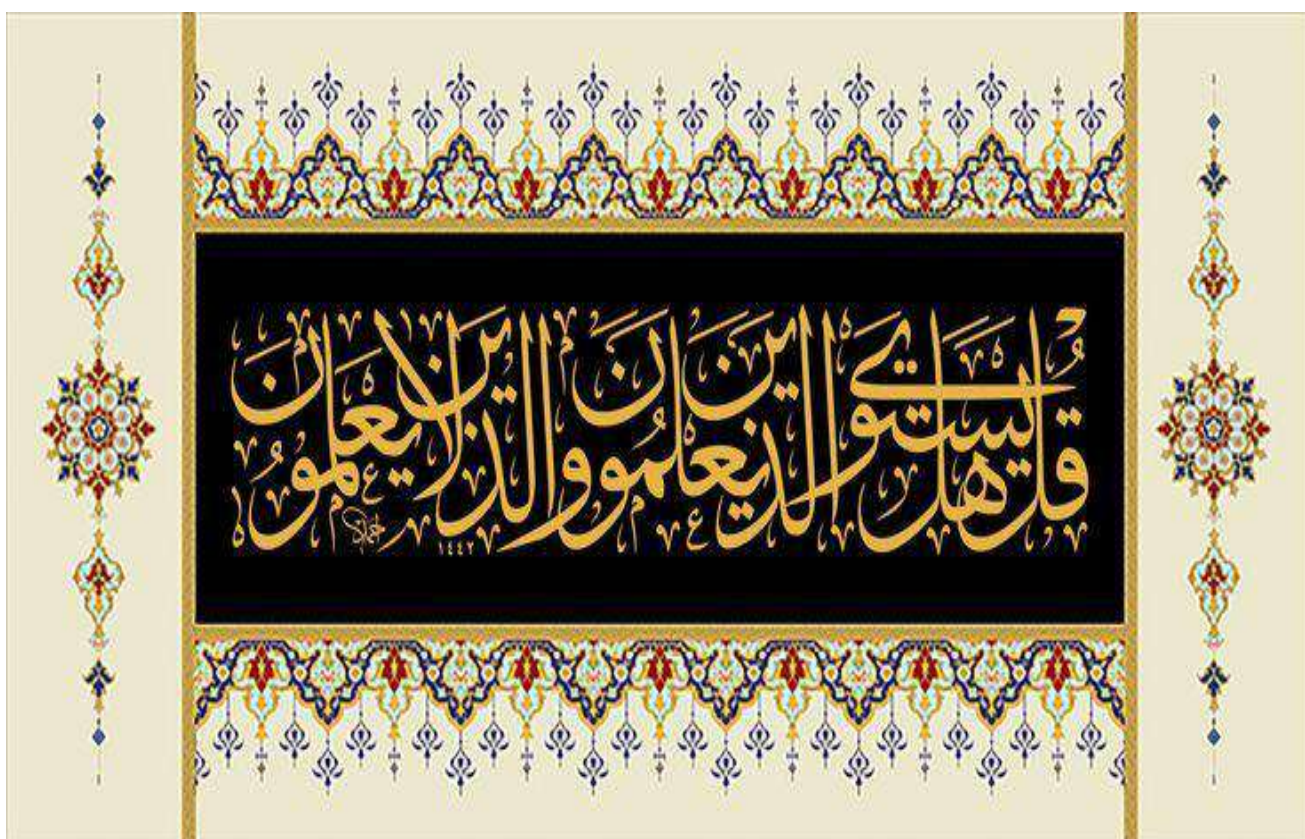 قُل هَل يَستَوِي الَّذينَ يَعلَمُونَ وَالَّذينَ لا يَعلَمُونَ
١٤٤٢